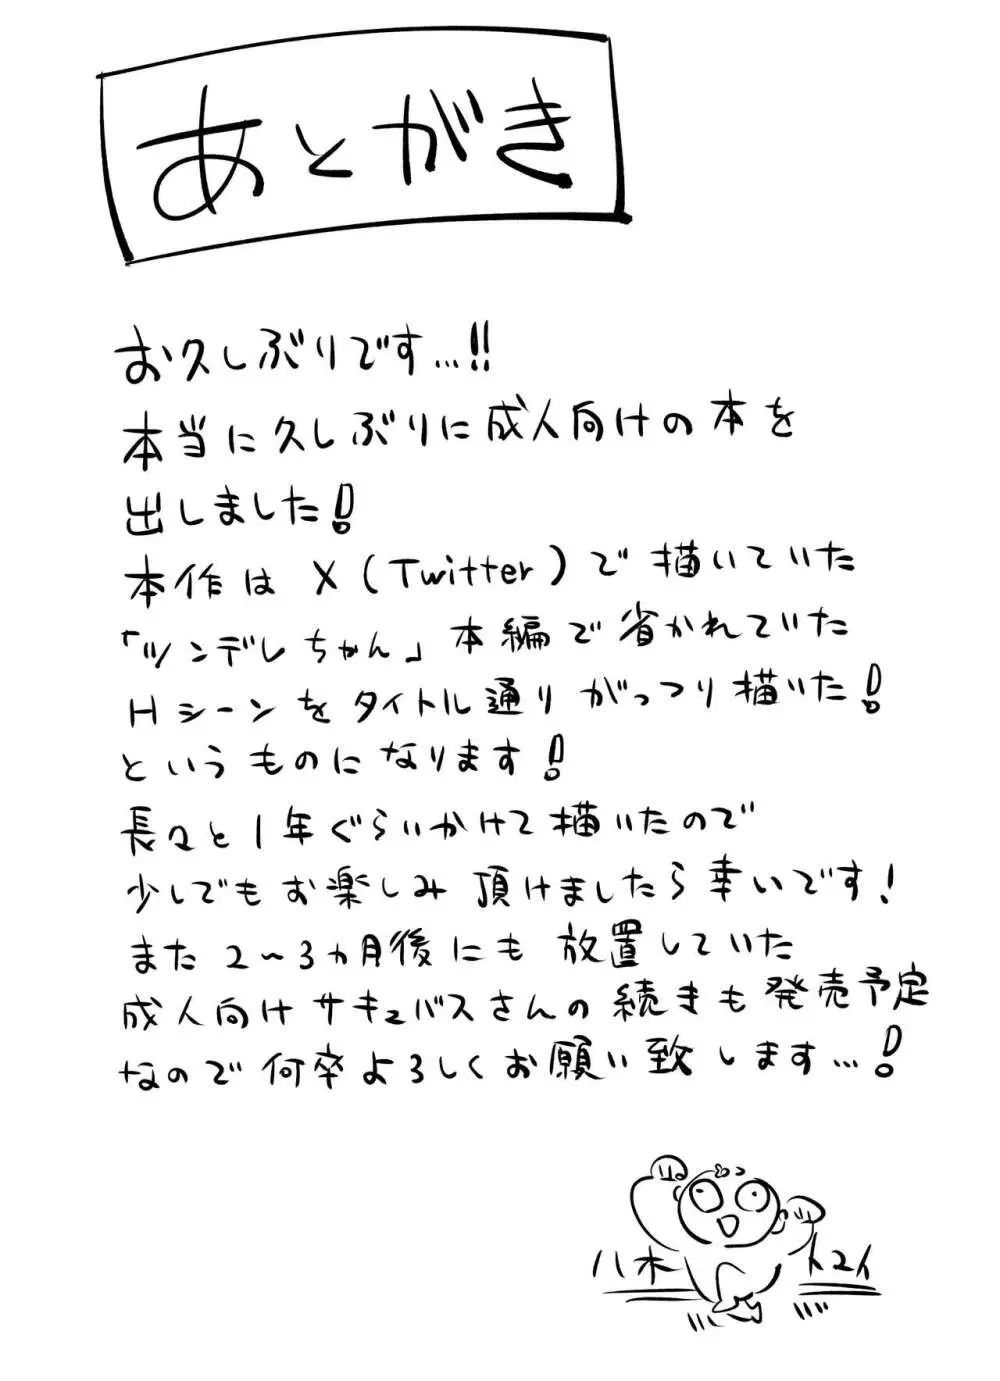 あとがき
お久しぶりです…!!
本当に久しぶりに成人向けの本を
出しました!
本作は X(Twitter)で描いていた
「ツンデレちゃん」本編で省かれていた
Hシーンをタイトル通りがっつり描いた!
というものになります!
長々と1年ぐらいかけて描いたので
少しでもお楽しみ頂けましたら幸いです!
また2~3ヵ月後にも放置していた
成人向けサキュバスさんの続きも発売予定
なので何卒よろしくお願い致します…!
八木